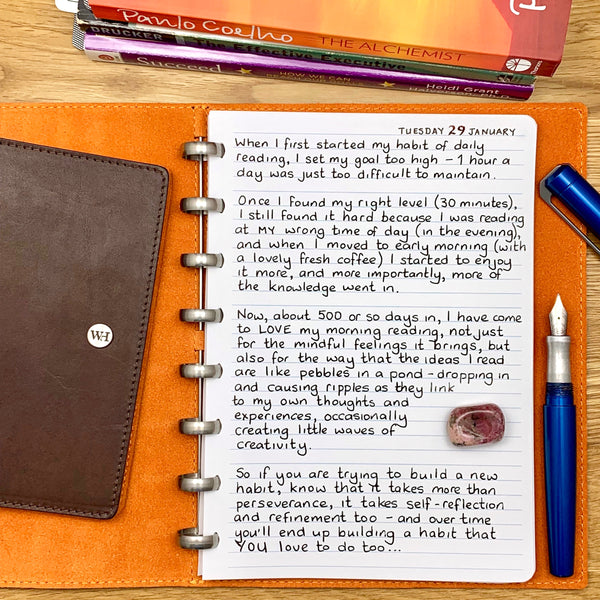 Paulo Coelho THE ALCHEMIST
DRUCKER The Effective Executive
Succeed HOW WE CAN Heidi Grant
TUESDAY 29 JANUARY
When I first started my habit of daily
reading, I set my goal too high - 1 hour a
day was just too difficult to maintain.
Once I found my right level (30 minutes),
I still found it hard because I was reading
at MY wrong time of day (in the evening),
and when I moved to early morning (with
a lovely fresh coffee) I started to enjoy
it more, and more importantly, more of
the knowledge went in.
Now, about 500 or so days in, I have come
to LOVE my morning reading, not just
for the mindful feelings it brings, but
also for the way that the ideas I read
are like pebbles in a pond - dropping in
and causing ripples as they link
to my own thoughts and
experiences, occasionally
creating little waves of
creativity.
So if you are trying to build a new
habit, know that it takes more than
perseverance, it takes self-reflection
and refinement too - and over time
you'll end up building a habit that
YOU love to do too...
WH